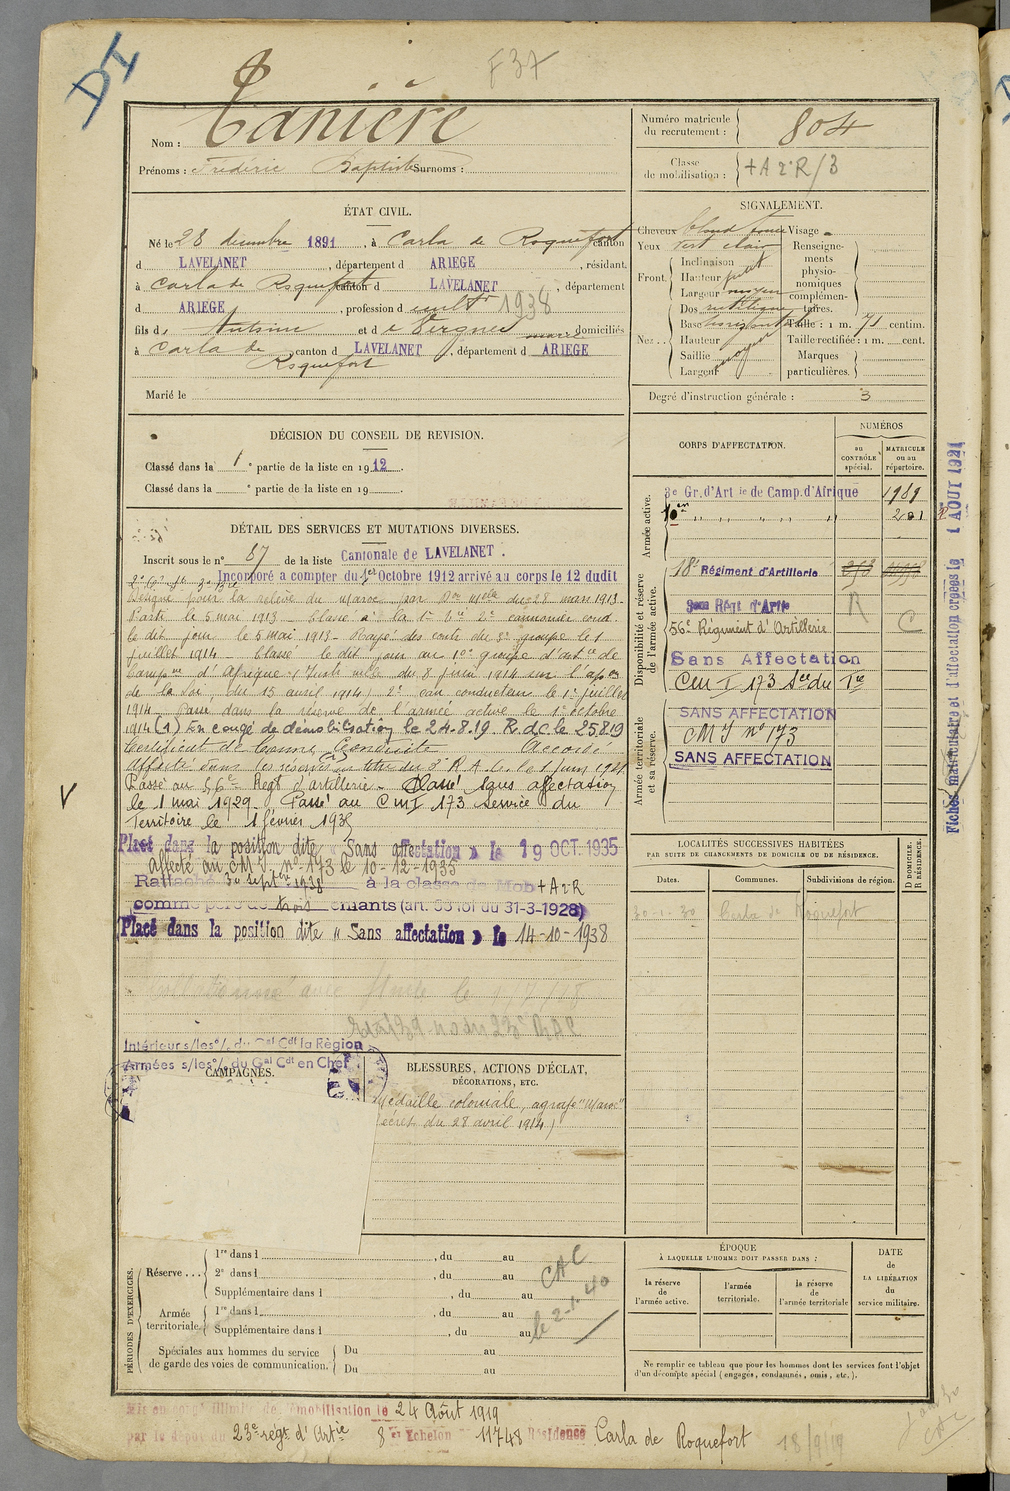 DI
F 37
Nom : Tanière
Prénoms : Frédéric Baptiste Surnoms :
Numéro matricule du recrutement : 804
Classe de mobilisation : +A 2e R/3
ÉTAT CIVIL.
Né le 28 décembre 1891, à Carla de Roquefort canton
d LAVELANET, département d ARIEGE, résidant
à Carla de Roquefort canton d LAVELANET, département
d ARIEGE, profession d cultr 1938
fils d Antoine et d e Vergnes domiciliés
à Carla de Roquefort, canton d LAVELANET, département d ARIEGE
Marié le
SIGNALEMENT.
Cheveux blond foncé Visage
Yeux vert clair Renseignements physionomiques complémentaires.
Front. Inclinaison
Hauteur petit
Largeur moyen
Nez. Dos rectiligne
Base horizontale Taille : 1 m. 71 centim.
Hauteur Taille rectifiée : 1 m. cent.
Saillie moyen Marques particulières.
Largeur
Degré d'instruction générale : 3
DÉCISION DU CONSEIL DE REVISION.
Classé dans la 1e partie de la liste en 1912.
Classé dans la e partie de la liste en 19
DÉTAIL DES SERVICES ET MUTATIONS DIVERSES.
Inscrit sous le no 87 de la liste Cantonale de LAVELANET.
Incorporé a compter du 1er Octobre 1912 arrivé au corps le 12 dudit
Désigné pour la relève du Maroc par du 28 mars 1913.
Parti le 5 mai 1913 - Classé à la 2e canonnier cond.
le dit jour le 5 mai 1913 - Rayé des contr. du 3e groupe le 1
juillet 1914 - Classé le dit jour au 10e groupe d'artie de
Campne d'Afrique (Instr. mlle du 8 juin 1914 sur l'app.
de la loi du 15 avril 1914) 2e can conducteur le 1er juillet
1914. Passé dans la réserve de l'armée active le 1er octobre
1914 (1) En congé de démobilisation le 24.8.19. R.d.c le 25.8.19
Certificat de Bonne Conduite Accordé
Affecté dans les réserves au titre du 3e R.A.C. le 1 Juin 1921
Passé au 56e Regt d'artillerie - Classé sans affectation
le 1 mai 1929 - Passé au CMI 173 Service du
Territoire le 1 février 193
Placé dans la position dite « Sans affectation » le 19 OCT. 1935
Affecté au CMI no 173 le 10-12-1935
Rattaché 30 septbre 1938 à la classe de Mob +A2R
comme père de trois enfants (art. 58 loi du 31-3-1928)
Placé dans la position dite « Sans affectation » le 14-10-1938
Intérieur s/les o/. du Gal Cdt la Région
Armées s/les o/. du Gal Cdt en Chef
CORPS D'AFFECTATION.
NUMÉROS
au CONTRÔLE spécial.
MATRICULE ou au répertoire.
Armée active.
3e Gr. d'Art ie de Camp. d'Afrique 1989
10e " " " " " 201
Disponibilité et réserve de l'armée active.
18e Régiment d'Artillerie
3eme Régt d'Artie R
56e Régiment d'Artillerie C
Sans Affectation
CM I 173 Sce du Tre
Armée territoriale et sa réserve.
SANS AFFECTATION
CMI no 173
SANS AFFECTATION
Fiches matriculaire et d'affectation créées le 1 AOUT 1921
LOCALITÉS SUCCESSIVES HABITÉES
PAR SUITE DE CHANGEMENTS DE DOMICILE OU DE RÉSIDENCE.
Dates. Communes. Subdivisions de région. D DOMICILE. R RÉSIDENCE.
30-1-30 Carla de Roquefort
CAMPAGNES.
BLESSURES, ACTIONS D'ÉCLAT,
DÉCORATIONS, ETC.
Médaille coloniale, agrafe "Maroc"
décret du 28 avril 1914)
PÉRIODES D'EXERCICES.
Réserve... 1re dans l , du au
2e dans l , du au
Supplémentaire dans l , du au
Armée territoriale 1re dans l , du au
Supplémentaire dans l , du au
Spéciales aux hommes du service de garde des voies de communication. Du au
Du au
CAC
le 2-1-40
ÉPOQUE
À LAQUELLE L'HOMME DOIT PASSER DANS :
la réserve de l'armée active.
l'armée territoriale.
la réserve de l'armée territoriale
DATE de LA LIBÉRATION du service militaire.
Ne remplir ce tableau que pour les hommes dont les services font l'objet
d'un décompte spécial (engagés, condamnés, omis, etc.).
Mis en congé illimité de démobilisation le 24 Août 1919
par le dépôt du 23e régt d'Artie 8er Echelon 11748 Résidence Carla de Roquefort
18/9/19